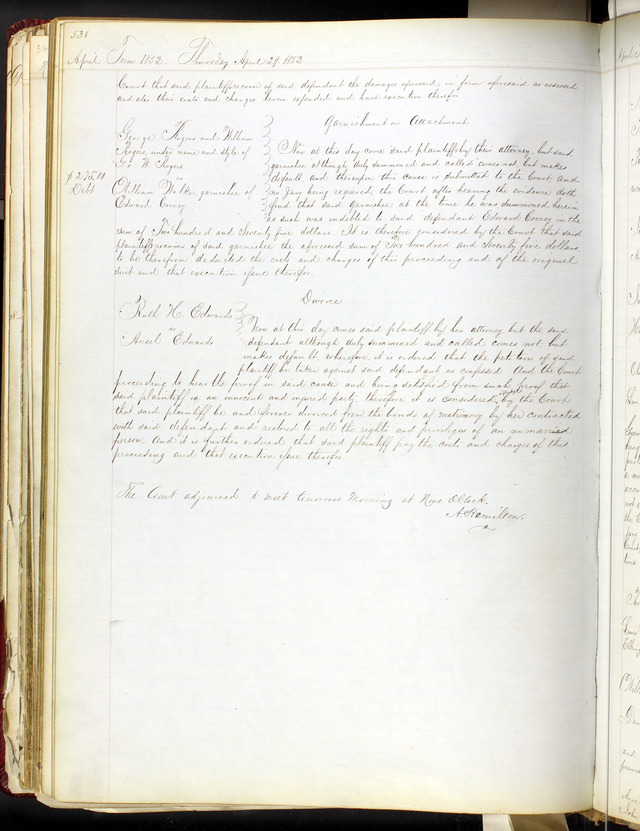 530
April Term 1852. Thursday April 29 1852
Court that said plaintiff recover of said defendant the damages aforesaid in form aforesaid as assessed
and also their costs and charges herein expended and have execution therefor.
Garnishment on Attachment
George Rogers and William
Rogers, under name and style of
G & W Rogers
vs
William Walker garnishee of
Edward Corney
$275,00
Debt
Now at this day come said plaintiff by their attorney, but said
garnishee although duly summoned and called comes not, but makes
default and thereupon this cause is submitted to the Court and
no Jury being required, the Court after hearing the evidence doth
find that said garnishee at the time he was summoned herein
as such was indebted to said defendant Edward Corney in the
sum of Two hundred and Seventy five dollars. It is therefore considered by the Court that said
plaintiff recover of said garnishee the aforesaid sum of Two hundred and Seventy five dollars,
to be therefrom deducted the costs and charges of this proceeding and of the original
suit and that execution issue therefor.
Divorce
Ruth H. Edwards
vs
Ansel Edwards
Now at this day comes said plaintiff by her attorney but the said
defendant although duly summoned and called comes not, but
makes default, wherefore it is ordered that the petition of said
plaintiff be taken against said defendant as confessed. And the Court
proceeding to hear the proof in said cause and being satisfied from such proof that
said plaintiff is an innocent and injured party therefore it is considered by the Court
that said plaintiff be and forever divorced from the bonds of matrimony by her contracted
with said defendant and restored to all the rights and privileges of an unmarried
person. And it is further ordered that said plaintiff pay the costs and charges of this
proceeding and that execution issue therefor.
The Court adjourned to meet tomorrow Morning at Nine OClock.
A Hamilton.